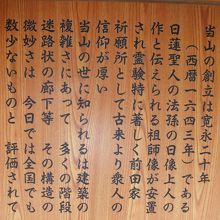 当山の創立は寛永二十年
(西暦一六四三年)である
日蓮聖人の法孫の日像上人の
作と伝えられる祖師像が安置
され霊験特に著しく前田家
祈願所として古来より衆人の
信仰が厚い
当山の世に知られるは建築の
複雑さにあって 多くの階段
迷路状の廊下等 その構造の
微妙さは 今日では全国でも
数少ないものと 評価されて